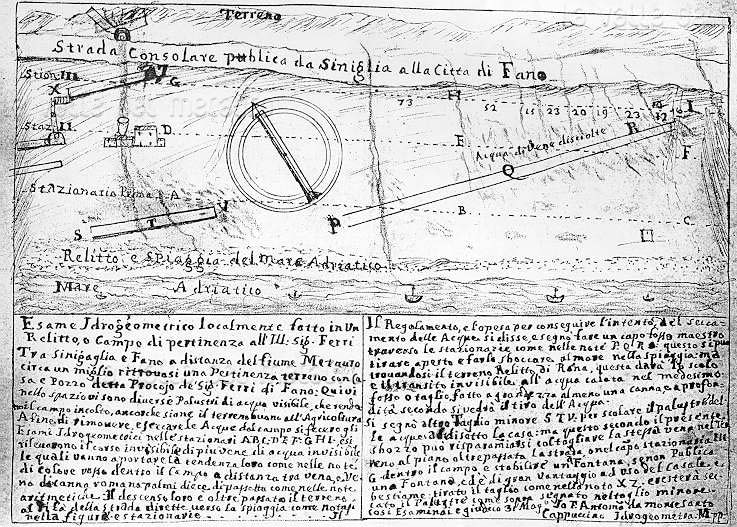 Terreno
Strada Consolare publica da Siniglia alla Citta di Fano
Stion. III
X
G
H
73
52
15
23
20
19
23
I
Staz. II.
D
E
Acqua di Vene disciolte
R
F
Q
Stazionario Prima A
B
C
P
S
T
V
Relitto e Spiaggia del Mare Adriatico
Mare Adriatico
Esame Jdrogeometrico localmente fatto in Un
Relitto, o Campo di pertinenza all' Ill: Sig: Ferri
Tra Sinigaglia e Fano a distanza del fiume Metauro
circa un miglio ritrovasi una Pertinenza terreno con Ca
sa e Pozzo detta Procojo de Sig: Ferri di Fano: Quivi
nello spazio vi sono diversi Palustri di acqua visibile, che rendono
il campo incolto, ancorche sia ne il terreno buono all' Agricoltura
A fine di rimovere, e seccare le Acque dal campo si fecero gli
Esami Jdrogeometrici nelle stazionari ABC: DEF: GHI:
rilevarono il corso invisibile di piu vene di acqua invisibile
le quali vanno a portare la tendenza loro come nelle note
di colore rosso dentro il Campo a distanza tra vena, e Ve
na da canna romana palmi diece disparsate come nelle note
aritmetiche Il descenso loro e oltre passato il terreno
la strada dirette verso la spiaggia come notasi
nella figura stazionarie
Il Regolamento, e l'opera per conseguire l'intento del secca
mento delle Acque, si disse, e segnò fare un capo fosso maestro
traverso le stazionarie come nelle note P.Q.R. questo si può
tirare aperto e farlo sboccare al mare nella spiaggia: ma
trovandosi il terreno Relitto di Rena, questa darà lo scolo
e il transito invisibile all' acqua calata nel medesimo
fosso o taglio, fatto a larghezza almeno una canna, e profon
dità secondo si vedrà il tiro dell' Acque.
Si segnò altro Taglio minore S.T.V. per scolare il palustre del
le acque di disotto la casa: ma questo secondo il presente
sborzo può risparmiarsi col togliere la stessa vena nel Te
reno al piano oltrepassata la strada, nel capo stazionaria III
G dentro il campo, e stabilire un Fontana, se non Publica
una Fontana, che di gran Vantaggio ad Uso del Casale, e
bestiame, tirato il taglio come nelle noto XZ: e resterà sec
cato il Palustre come sopra segnato nel toglio minore.
Cosi Esaminai e giudico 31 Mag: Io F. Antonio da Monte Santo
Cappuccino Jdrogeometra M. pp.